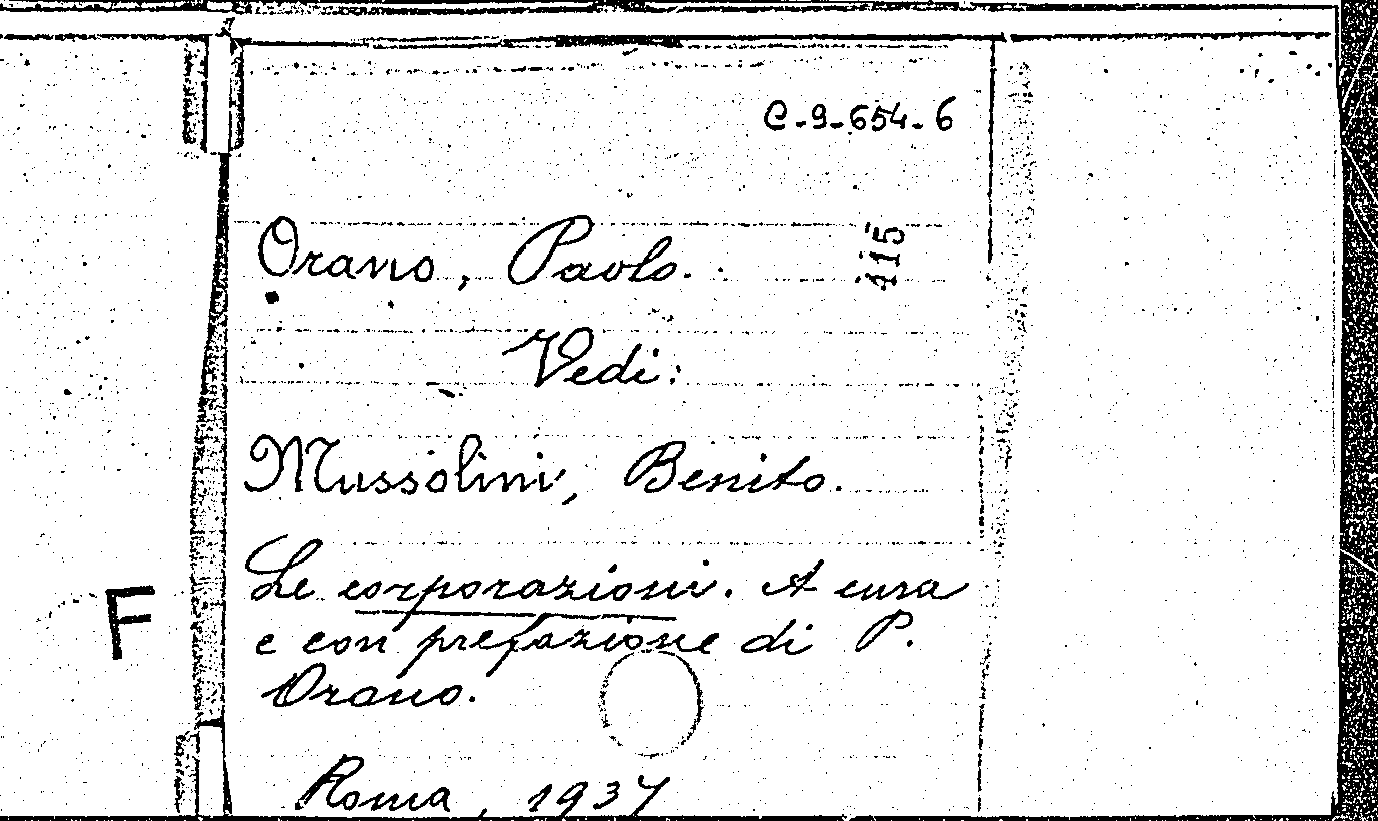 C-9-654-6
Orano, Paolo.
115
Vedi:
Mussolini, Benito.
Le corporazioni. A cura
e con prefazione di P.
Orano.
F
Roma, 1937